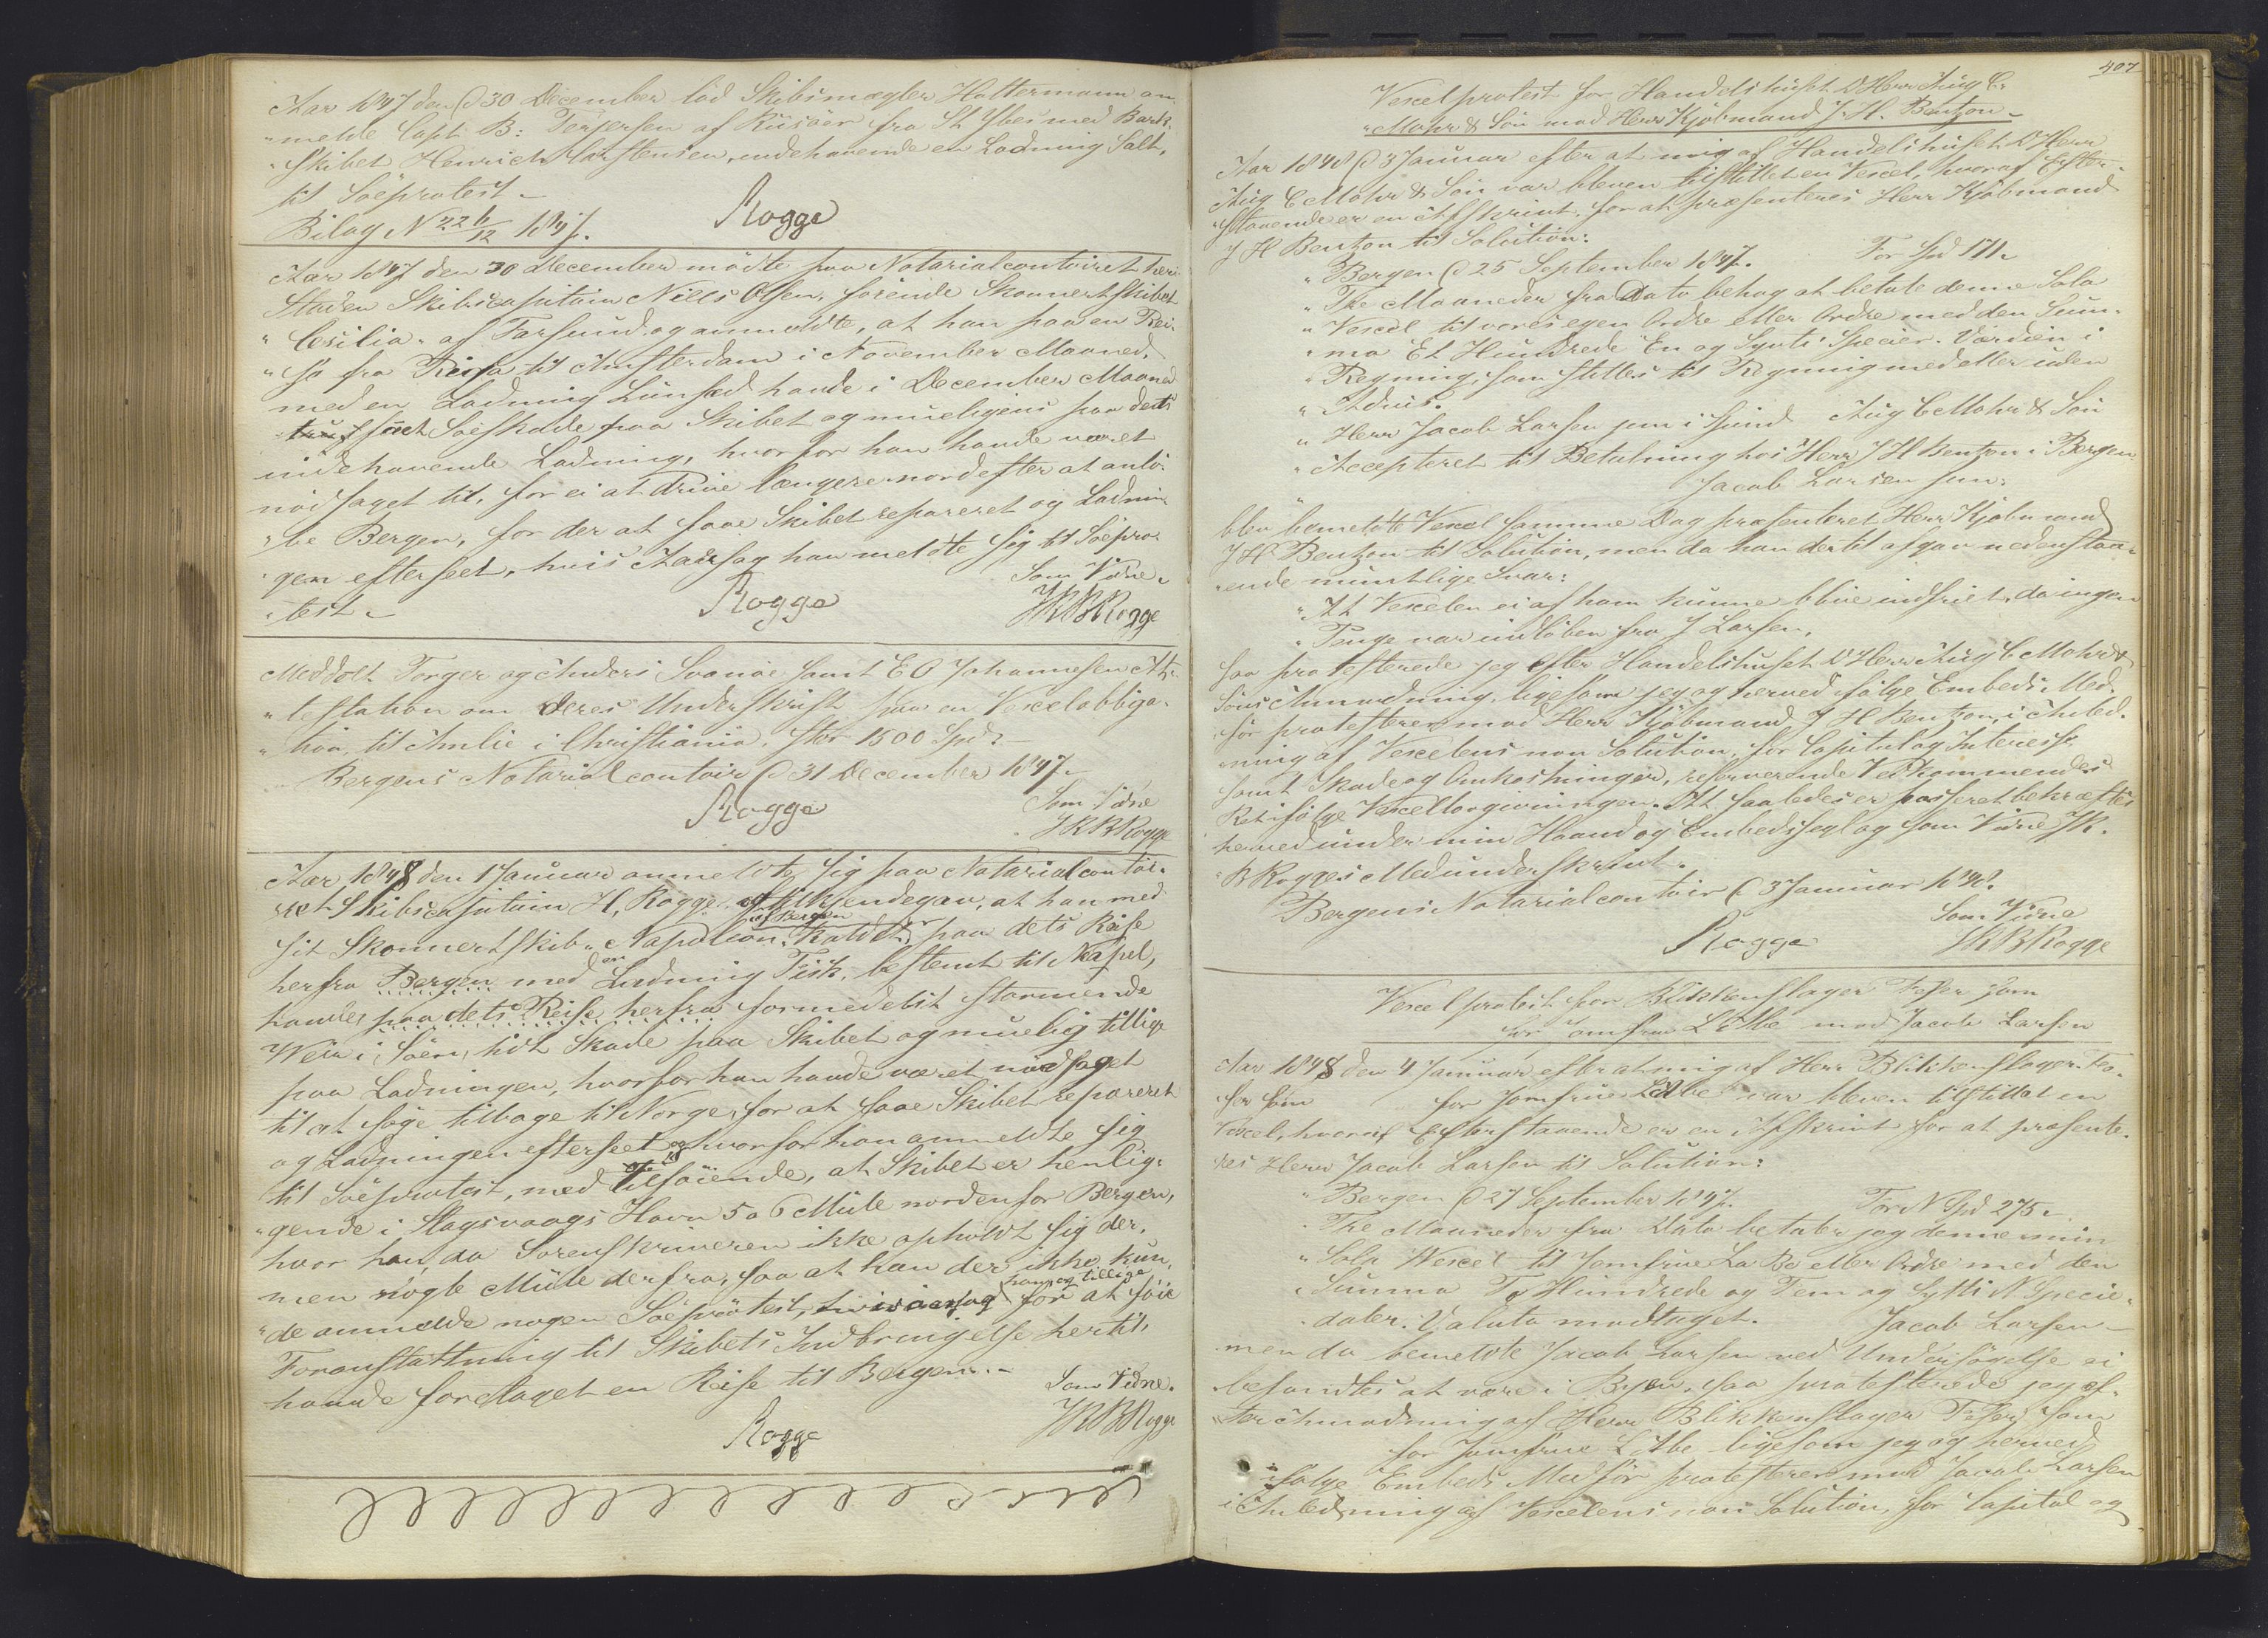 Aar 1847 den 30 December lod Skibsmægler Hattermann an-
"melde Capt: B: Terjersen af Riisöer fra St Ybes med Bark-
"skibet Henrich Carstensen, indehavende en Ladning Salt,
til Söeprotest.-
Bilag N 22 6/12 1847. Rogge
Aar 1847 den 30 December mödte paa Notarialcontoiret her i
Staden Skibscapitain Niels Olsen, förende Skonnertskibet
"Cesilia" af Farsund og anmeldte, at han paa en Rei-
"se fra Riga til Amsterdam i November Maaned,
med en Ladning Linsæd havde i December Maaned
faaet Söeskade paa Skibet og mueligens paa dets
indehavende Ladning, hvorfor han havde været
nödsaget til, for ei at drive længere nordefter at anlö-
"be Bergen, for der at faae Skibet repareret og Ladnin-
"gen efterseet, hvis Aarsag han meldte sig til Söepro-
"test.- Rogge Som Vidne.
JRBRogge
Meddelt Torger og Anders Svanöe samt E O Johannesen At-
"testation om deres Underskrift paa en Vexelobliga-
"tion til Amlie i Christiania, stor 1500 Spd.-
Bergens Notarialcontoir d 31 December 1847.-
Rogge Som Vidne
JRBRogge
Aar 1848 den 1 Januar anmeldte sig paa Notarialcontoi-
"ret Skibscapitain H. Rogge og tilkjendegav, at han med
af Bergen
sit Skonnertskib "Napoleon" kaldet, paa dets Reise
herfra Bergen med en Ladning Fisk, bestemt til Neapel,
havde paa dets Reise herfra formedelst stormende
Veir i Söen, lidt Skade paa Skibet og muelig tillige
paa Ladningen, hvorfor han havde været nödsaget
til at söge tilbage til Norge, for at faae Skibet repareret
og Ladningen efterseet og hvorfor han anmeldte sig
til Söeprotest, med Tilföiende, at Skibet er henlig-
"gende i Slagsvaags Havn 5 a 6 Miile nordenfor Bergen,
hvor han, da Sorenskriveren ikke opholdt sig der,
men nogle Miile derfra, saa at han der ikke kun-
"de anmelde nogen Söeprotest, hvisaarsag han og tillige for at föie
Foranstaltning til Skibets Indbringelse hertil,
havde foretaget en Reise til Bergen.-
Rogge Som Vidne.
JRBRogge
407
Vexelprotest for Handelshuset D'Herr Aug C.
Mohr & Sön mod Herr Kjöbmand J. H. Bentzon.-
Aar 1848 d 3 Januar efter at mig af Handelshuset D'Herr
Aug C Mohr & Sön var bleven tilstillet en Vexel, hvoraf Efter-
"staaende er en Afskrivt, for at præsenteres Herr Kjöbmand
J H Bentzon til Solution:
"Bergen d 25 September 1847. For Spd 171.
"Tre Maaneder fra Dato behag at betale denne Sola
"Vexel til vores egen Ordre eller Ordre med den Sum-
"ma Et Hundrede En og Sytti Specier. Værdien i
"Regning, som stilles til Regning med eller uden
"Advis.
"Herr Jacob Larsen jun i Sund Aug C Mohr & Sön
"Accepteret til Betalning hos Herr J H Bentzon i Bergen
Jacob Larsen jun:
blev bemeldte Vexel samme Dag præsenteret Herr Kjöbmand
J H Bentzon til Solution, men da han dertil afgav nedenstaa-
"ende mundtlige Svar:
"At Vexelen ei af ham kunne blive indfriet, da ingen
"Penge var indlöben fra J Larsen,
saa protesterede jeg efter Handelshuset D'Herr Aug C Mohr &
Söns Anmodning, ligesom jeg og herved ifölge Embeds Med-
"för protesterer mod Herr Kjöbmand J H Bentzon, i Anled-
"ning af Vexelens non Solution, for Capital og Interesse
samt Skade og Omkostninger, reserverende Vedkommendes
Ret ifölge Vexellovgivningen. At saaledes er passeret bekræftes
herved under min Haand og Embedssegl og som Vidne JR.
"B Rogges Medunderskrivt.
Bergens Notarialcontoir d 3 Januar 1848.
Rogge Som Vidne
JRBRogge
Vexelprotest for Blikkenslager som
for Jomfrue mod Jacob Larsen
Aar 1848 den 4 Januar efter at mig af Herr Blikkenslager
som for Jomfrue var bleven tilstillet en
Vexel, hvoraf Efterstaaende er en Afskrivt for at præsente-
"res Herr Jacob Larsen til Solution:
"Bergen d 27 September 1847. For N Spd 275.
"Tre Maaneder fra Dato betaler jeg denne min
"Sola Vexel til Jomfrue La Be eller Ordre med den
"Summa To Hundrede og Fem og Sytti N. Specie-
"daler. Valuta modtaget. Jacob Larsen.-
men da bemeldte Jacob Larsen ved Undersögelse ei
befandtes at være i Byen, saa protesterede jeg ef-
"ter Anmodning af Herr Blikkenslager som
for Jomfrue ligesom jeg og herved
ifölge Embeds Medför protesterer mod Jacob Larsen
i Anledning af Vexelens non Solution, for Capital og